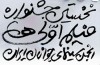 نخستین جشنواره
فیلم آوردهی
انجمن سینمای جوانان ایران